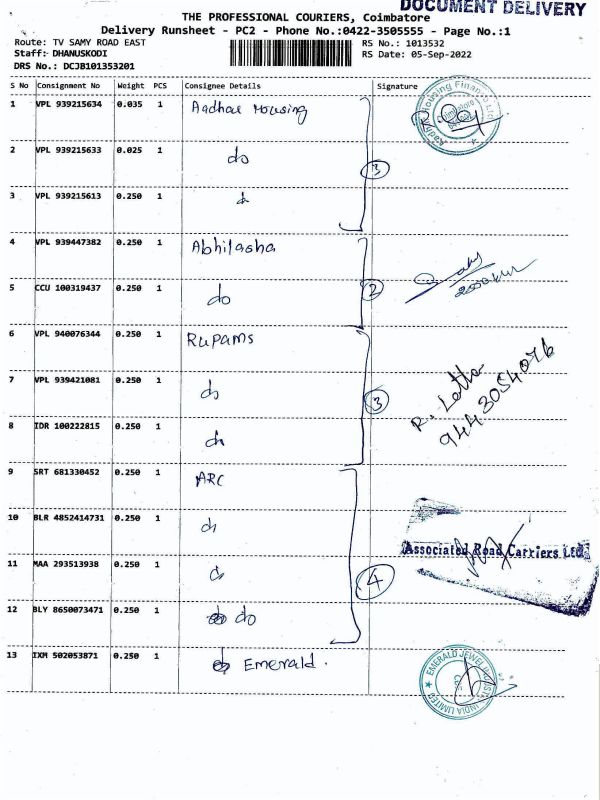 DOCUMENT DELIVERY
THE PROFESSIONAL COURIERS, Coimbatore
Delivery Runsheet - PC2 - Phone No.:0422-3505555 - Page No.:1
Route: TV SAMY ROAD EAST RS No.: 1013532
Staff: DHANUSKODI RS Date: 05-Sep-2022
DRS No.: DCJB101353201
S No Consignment No Weight PCS Consignee Details Signature
1 VPL 939215634 0.035 1 Aadhar Housing
2 VPL 939215633 0.025 1 do
3
3 VPL 939215613 0.250 1 do
4 VPL 939447382 0.250 1 Abhilasha
5 CCU 100319437 0.250 1 do 2
6 VPL 940076344 0.250 1 Rupams
7 VPL 939421081 0.250 1 do
3 R. Latha
9443054076
8 IDR 100222815 0.250 1 do
9 SRT 681330452 0.250 1 ARC
10 BLR 4852414731 0.250 1 do
Associated Road Carriers Ltd
11 MAA 293513938 0.250 1 do
4
12 BLY 8650073471 0.250 1 do do
13 IXM 502053871 0.250 1 do Emerald.
Aadhar Housing Finance Ltd
Coimbatore
EMERALD JEWEL INDUSTRY INDIA LIMITED